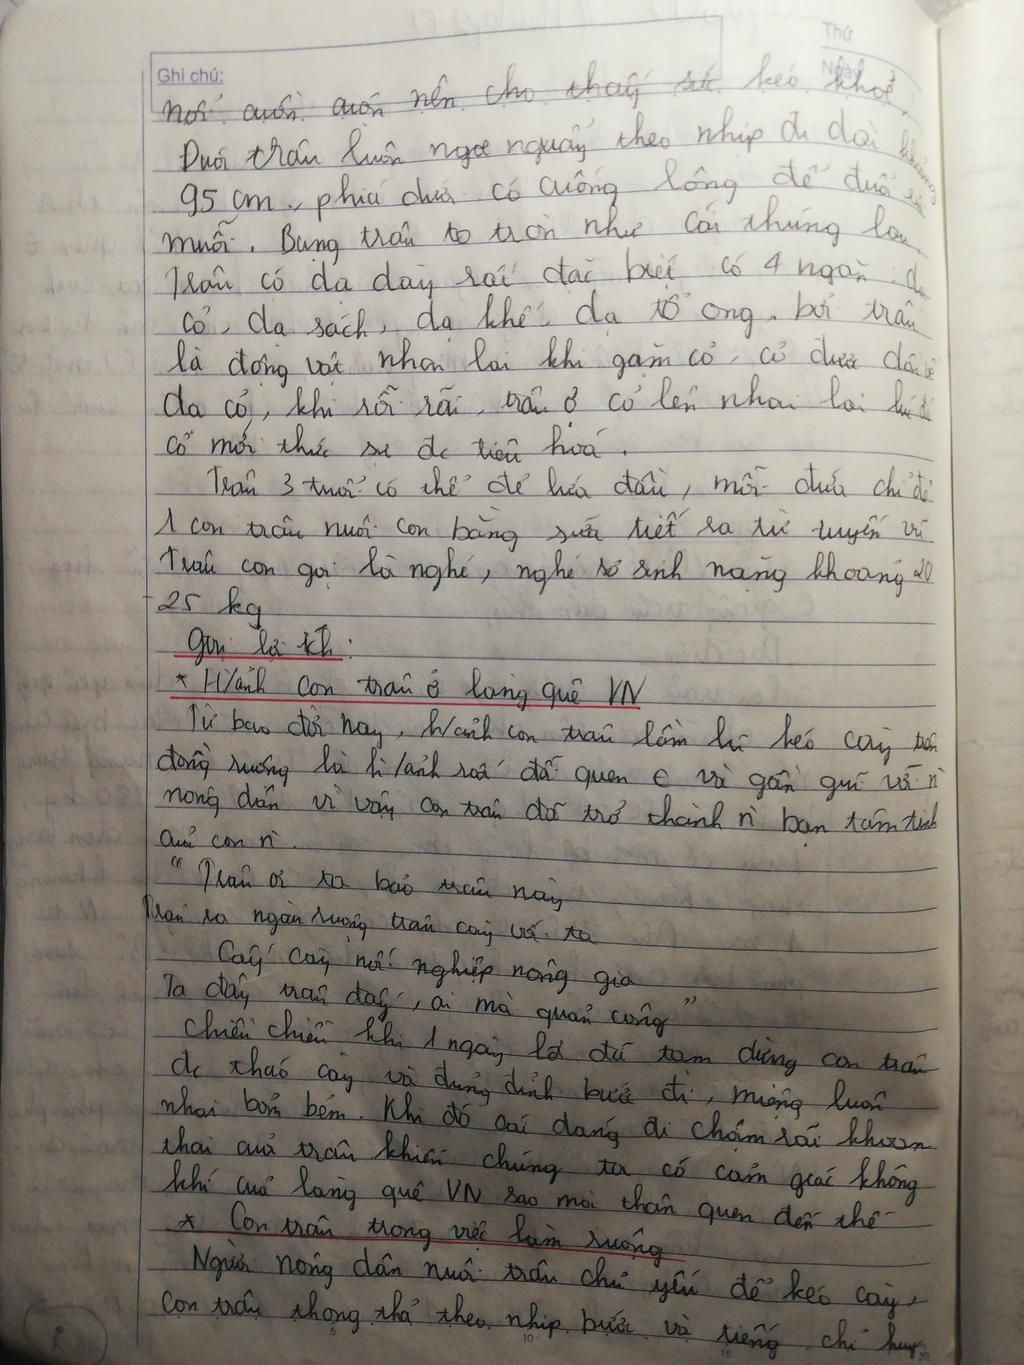 Thứ
Ngày
Ghi chú:
nổi cuồn cuộn nên cho thấy sức kéo khoẻ.
Đuôi trâu luôn ngoe nguẩy theo nhịp đi dài khoảng
95 cm, phía dưới có cuống lông để đuổi
muỗi. Bụng trâu to tròn như cái thùng lớn
Trâu có dạ dày rất đặc biệt có 4 ngăn, dạ
cỏ, dạ sách, dạ khế, dạ tổ ong. bởi trâu
là động vật nhai lại khi gặm cỏ, cỏ đưa đến
dạ cỏ, khi rỗi rãi, trâu ợ cỏ lên nhai lại
cỏ mới thức sự đc tiêu hoá.
Trâu 3 tuổi có thể đẻ lứa đầu, mỗi đứa chỉ đẻ
1 con trâu nuôi con bằng sữa tiết ra từ tuyến vú
Trâu con gọi là nghé, nghé sơ sinh nặng khoảng 20
25 kg
Gợi là kh:
* H/ảnh con trâu ở làng quê VN
Từ bao đời nay, h/ảnh con trâu lầm lũi kéo cày trên
đồng ruộng là h/ảnh rất đỗi quen € và gần gũi với n
nông dân vì vậy con trâu đã trở thành n bạn tâm tình
của con n.
"Trâu ơi ta bảo trâu này
Trâu ra ngoài ruộng trâu cày với ta
Cấy cày nối nghiệp nông gia
Ta đây trâu đấy, ai mà quản công"
Chiều chiều khi 1 ngày lđ đã tạm dừng con trâu
đc tháo cày và đủng đỉnh bước đi, miệng luôn
nhai bỏm bẻm. Khi đó cái dáng đi chậm rãi khoan
thai của trâu khiến chúng ta có cảm giác không
khí của làng quê VN sao mà thân quen đến thế
* Con trâu trong việc làm ruộng
Người nông dân nuôi trâu chủ yếu để kéo cày,
con trâu thong thả theo nhịp bước và tiếng chỉ huy